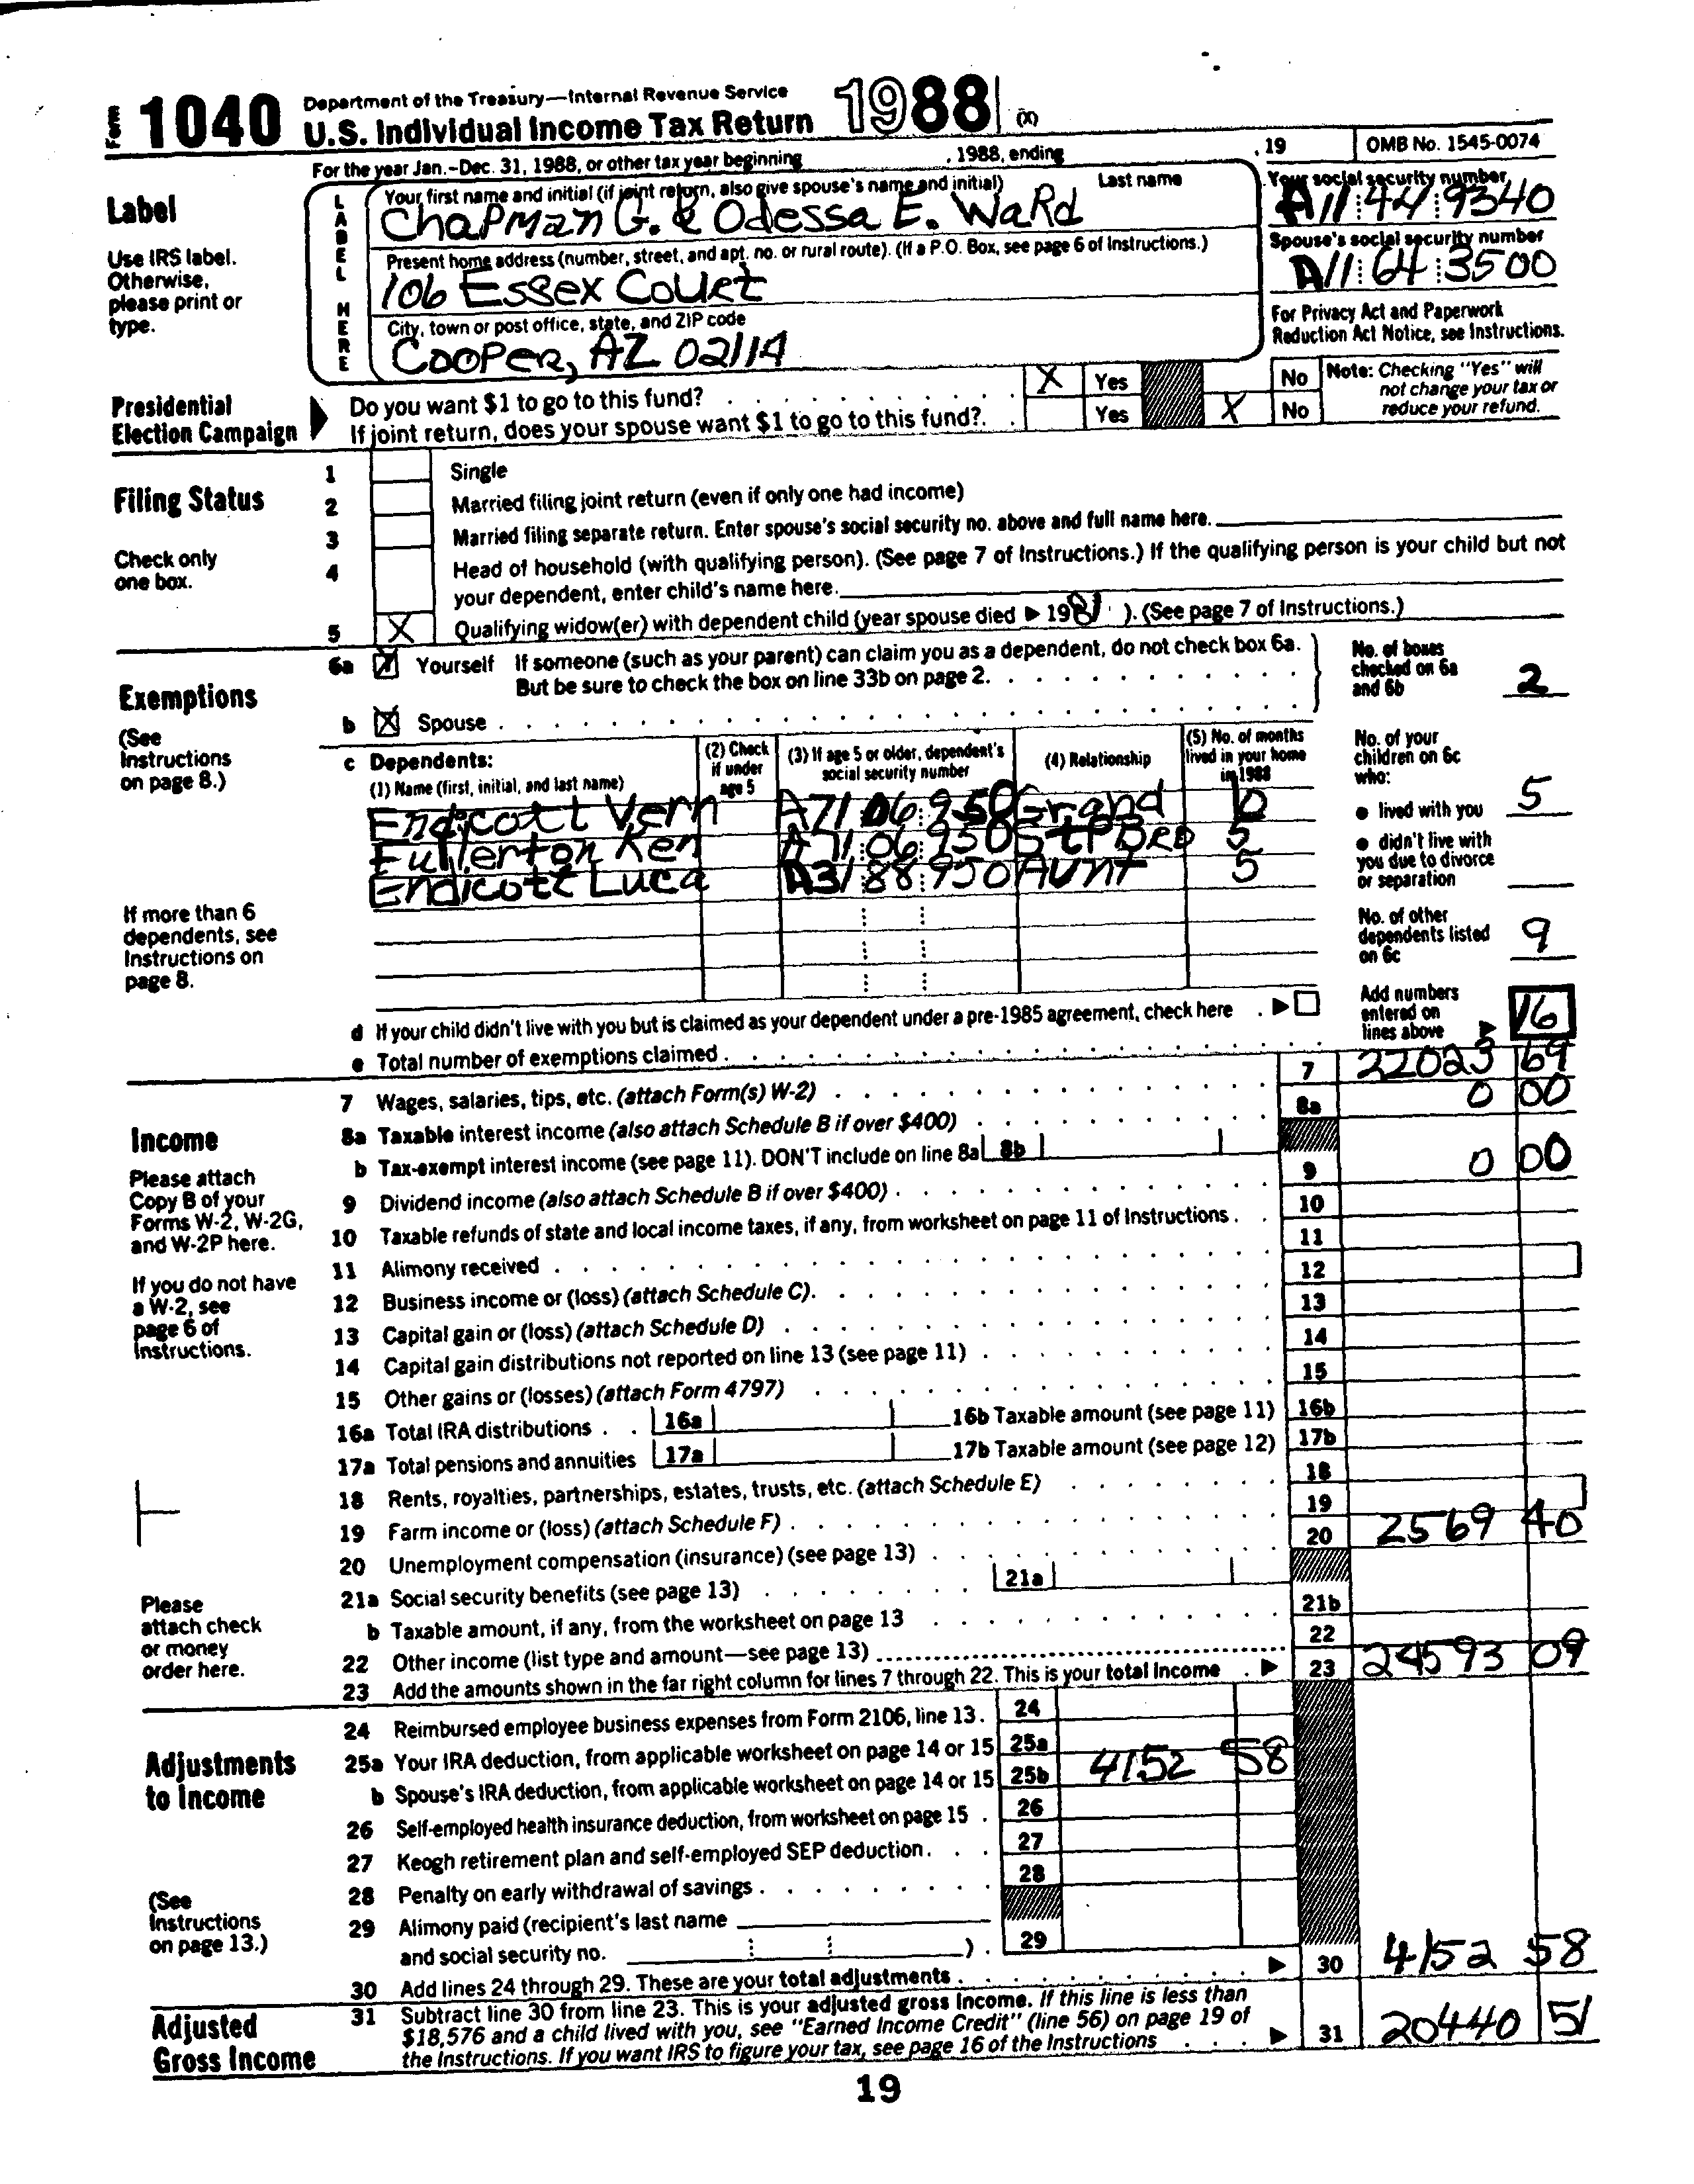 Form 1040 Department of the Treasury—Internal Revenue Service
U.S. Individual Income Tax Return 1988 (X)
For the year Jan.–Dec. 31, 1988, or other tax year beginning , 1988, ending , 19 OMB No. 1545-0074
Label
Use IRS label.
Otherwise,
please print or
type.
LABEL HERE
Your first name and initial (if joint return, also give spouse's name and initial) Last name
Chapman G. & Odessa E. Ward
Your social security number
A11 44 9340
Present home address (number, street, and apt. no. or rural route). (If a P.O. Box, see page 6 of Instructions.)
106 Essex Court
Spouse's social security number
A11 64 3500
City, town or post office, state, and ZIP code
Cooper, AZ 02114
For Privacy Act and Paperwork
Reduction Act Notice, see Instructions.
Presidential
Election Campaign
Do you want $1 to go to this fund? X Yes No
If joint return, does your spouse want $1 to go to this fund? Yes X No
Note: Checking "Yes" will
not change your tax or
reduce your refund.
Filing Status
Check only
one box.
1 Single
2 Married filing joint return (even if only one had income)
3 Married filing separate return. Enter spouse's social security no. above and full name here.
4 Head of household (with qualifying person). (See page 7 of Instructions.) If the qualifying person is your child but not
your dependent, enter child's name here.
5 X Qualifying widow(er) with dependent child (year spouse died ▶ 1981 ). (See page 7 of Instructions.)
Exemptions
(See
Instructions
on page 8.)
6a X Yourself If someone (such as your parent) can claim you as a dependent, do not check box 6a.
But be sure to check the box on line 33b on page 2.
b X Spouse
No. of boxes
checked on 6a
and 6b 2
c Dependents:
(1) Name (first, initial, and last name)
(2) Check
if under
age 5
(3) If age 5 or older, dependent's
social security number
(4) Relationship
(5) No. of months
lived in your home
in 1988
Endicott Vern A71 06 950 Grand 6
Fullerton Ken A71 06 950 StPBRO 5
Endicott Luca A31 88 950 AUNT 5
If more than 6
dependents, see
Instructions on
page 8.
No. of your
children on 6c
who:
● lived with you 5
● didn't live with
you due to divorce
or separation
No. of other
dependents listed
on 6c 9
d If your child didn't live with you but is claimed as your dependent under a pre-1985 agreement, check here ▶
e Total number of exemptions claimed
Add numbers
entered on
lines above ▶ 16
Income
Please attach
Copy B of your
Forms W-2, W-2G,
and W-2P here.
If you do not have
a W-2, see
page 6 of
Instructions.
Please
attach check
or money
order here.
7 Wages, salaries, tips, etc. (attach Form(s) W-2) 7 22023 69
8a Taxable interest income (also attach Schedule B if over $400) 8a 0 00
b Tax-exempt interest income (see page 11). DON'T include on line 8a 8b
9 Dividend income (also attach Schedule B if over $400) 9 0 00
10 Taxable refunds of state and local income taxes, if any, from worksheet on page 11 of Instructions 10
11 Alimony received 11
12 Business income or (loss) (attach Schedule C) 12
13 Capital gain or (loss) (attach Schedule D) 13
14 Capital gain distributions not reported on line 13 (see page 11) 14
15 Other gains or (losses) (attach Form 4797) 15
16a Total IRA distributions 16a 16b Taxable amount (see page 11) 16b
17a Total pensions and annuities 17a 17b Taxable amount (see page 12) 17b
18 Rents, royalties, partnerships, estates, trusts, etc. (attach Schedule E) 18
19 Farm income or (loss) (attach Schedule F) 19
20 Unemployment compensation (insurance) (see page 13) 20 2569 40
21a Social security benefits (see page 13) 21a
b Taxable amount, if any, from the worksheet on page 13 21b
22 Other income (list type and amount—see page 13) 22
23 Add the amounts shown in the far right column for lines 7 through 22. This is your total income ▶ 23 24593 09
Adjustments
to Income
(See
Instructions
on page 13.)
24 Reimbursed employee business expenses from Form 2106, line 13. 24
25a Your IRA deduction, from applicable worksheet on page 14 or 15 25a
b Spouse's IRA deduction, from applicable worksheet on page 14 or 15 25b 4152 58
26 Self-employed health insurance deduction, from worksheet on page 15 26
27 Keogh retirement plan and self-employed SEP deduction 27
28 Penalty on early withdrawal of savings 28
29 Alimony paid (recipient's last name
and social security no. ) 29
30 Add lines 24 through 29. These are your total adjustments ▶ 30 4152 58
Adjusted
Gross Income
31 Subtract line 30 from line 23. This is your adjusted gross income. If this line is less than
$18,576 and a child lived with you, see "Earned Income Credit" (line 56) on page 19 of
the Instructions. If you want IRS to figure your tax, see page 16 of the Instructions ▶ 31 20440 51
19